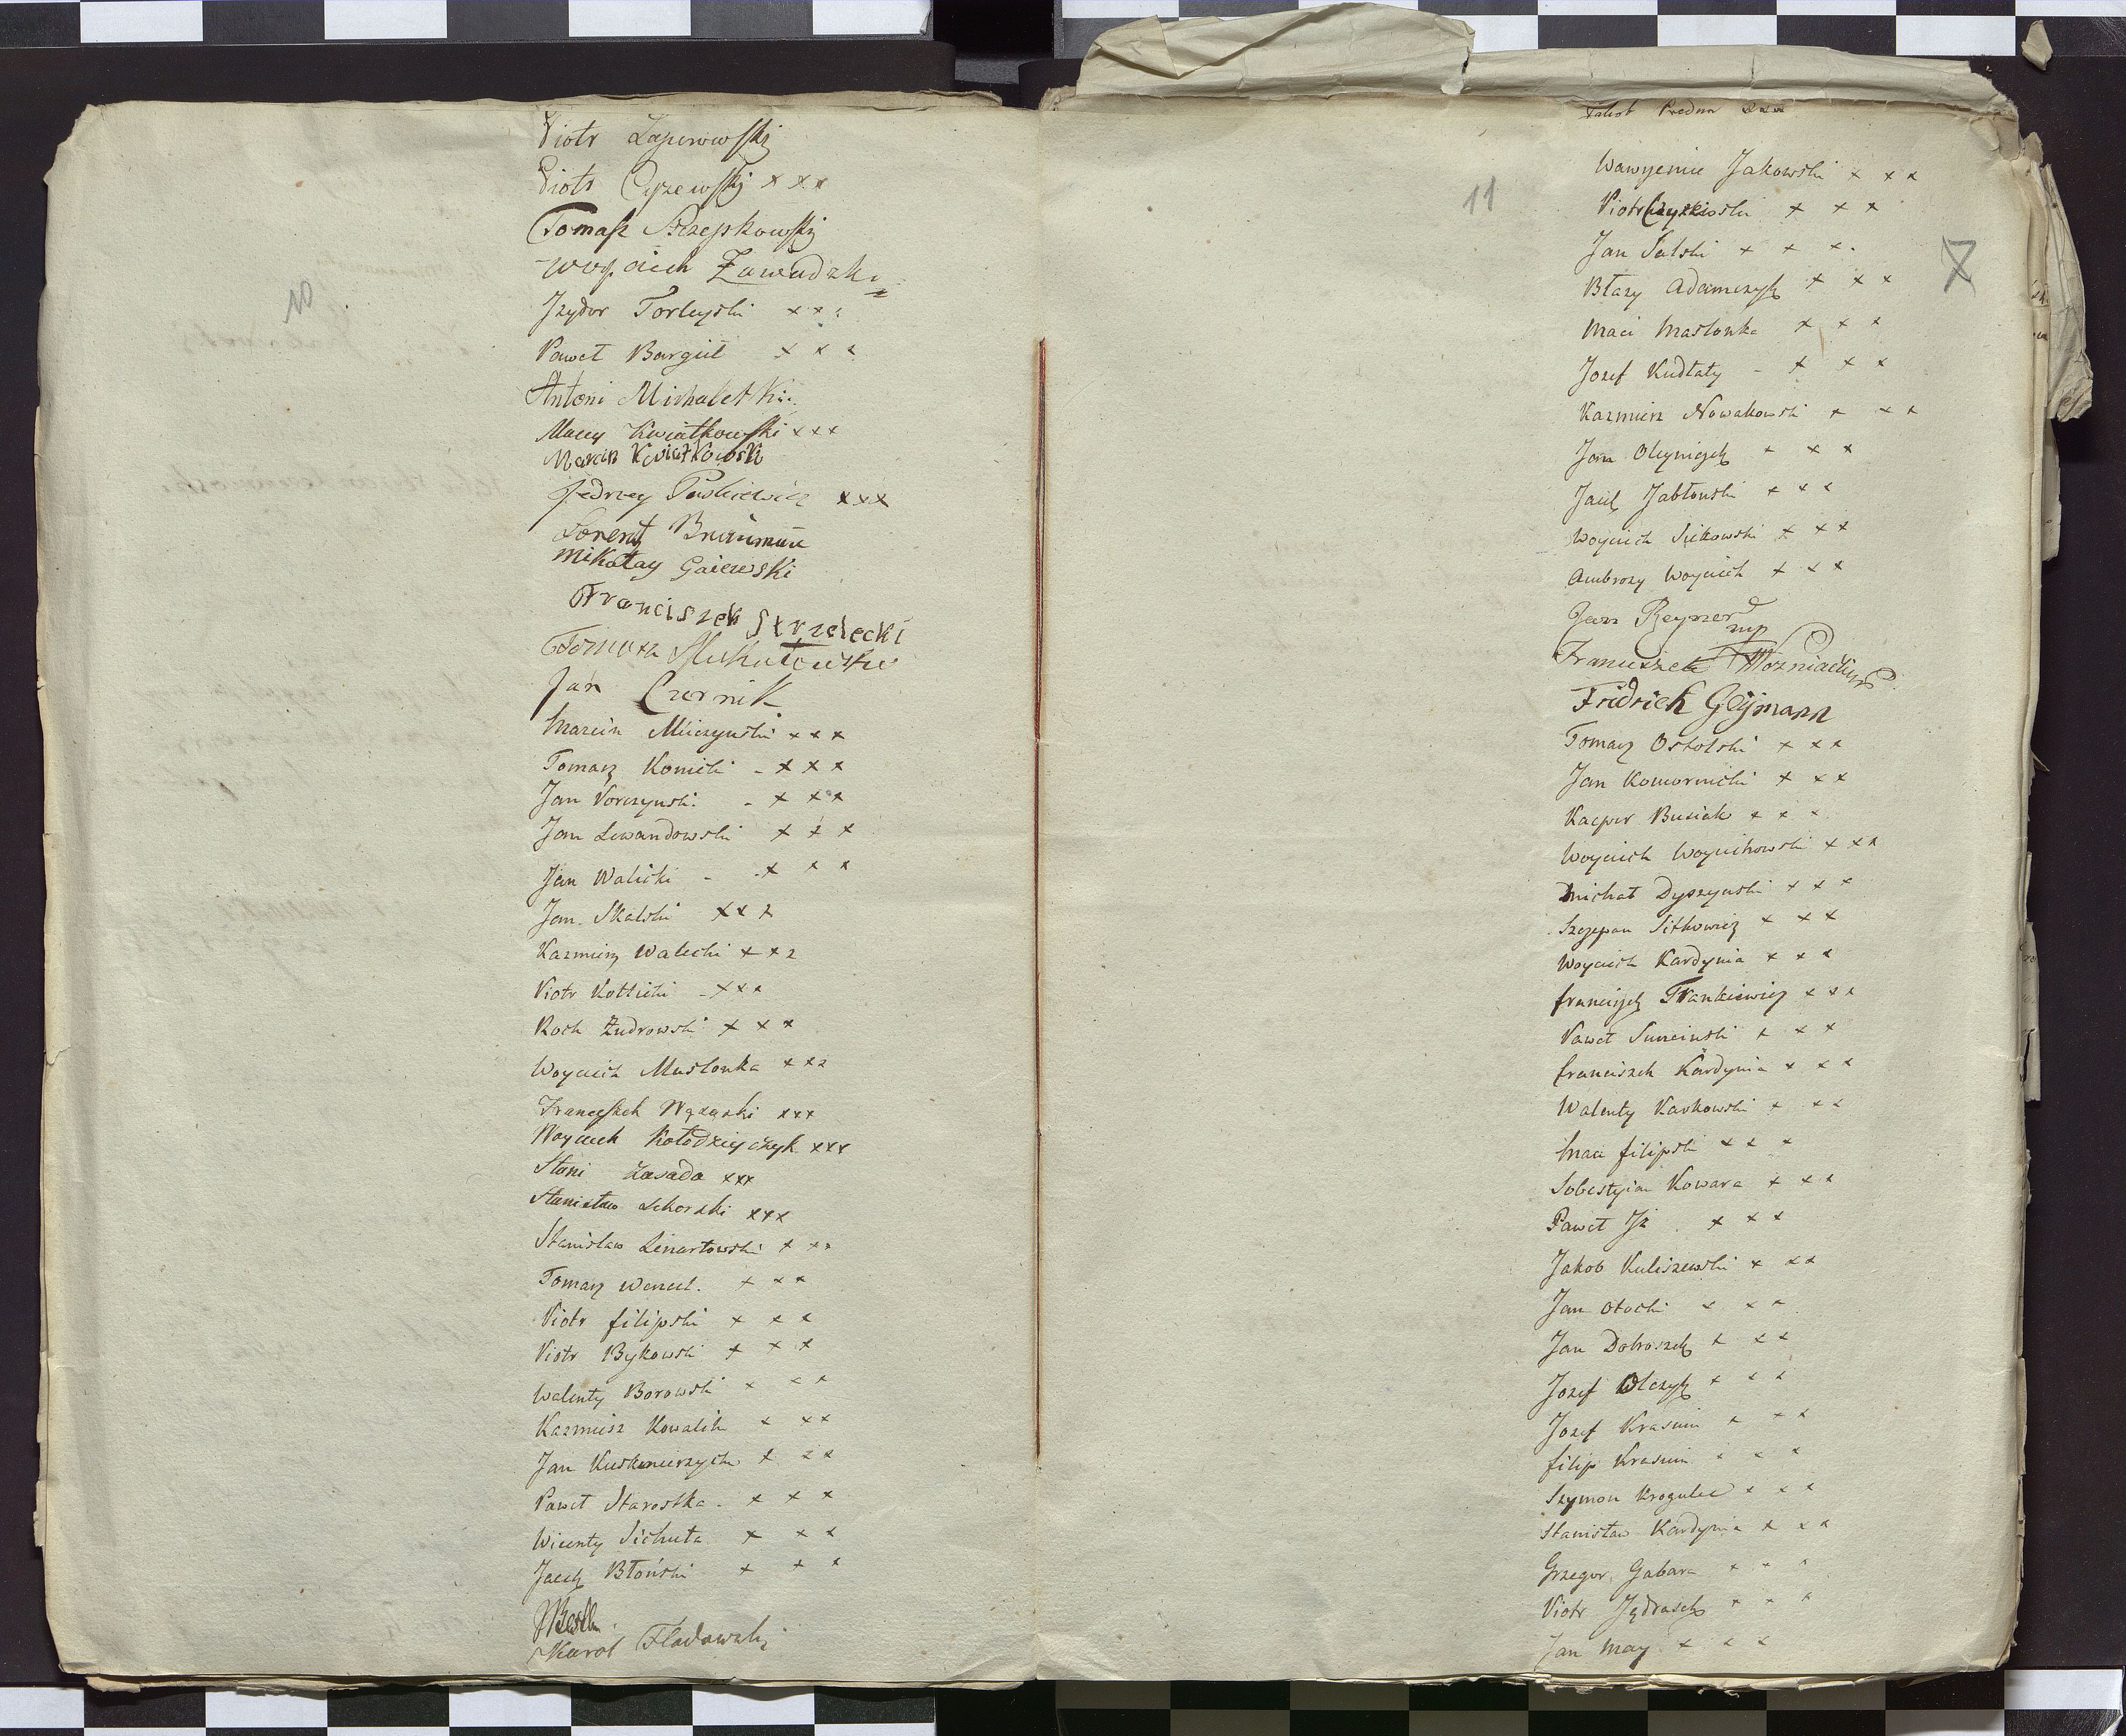 10
Piotr Łapinowski
Piotr Cyzewski x x x
Tomasz Strzepkowski
Woyciech Zawadzki
Jzydor Torleyski x x x
Paweł Bargieł x x x
Antoni Michaletki
Maciey Kwiatkowski x x x
Marcin Kwiatkowsk
Jedrzey Paskiewicz x x x
Lorentz
Mikołay Gaiewski
Franciszek Strzelecki
Tomasz
Jan Czernik
Marcin Miiczynski x x x
Tomasz Konicki - x x x
Jan Porczynski - x x x
Jan Lewandowski x x x
Jan Walicki - x x x
Jan Skalski x x x
Kazmierz Walecki x x x
Piotr Kotticki - x x x
Roch Zudrowski x x x
Woyciech Maslonka x x x
Franciszek x x x
Woyciech Kołodzieyczyk x x x
Stani Zasada x x x
Stanisław x x x
Stanisław Lenartowski x x x
Tomasz Wencel. x x x
Piotr filipski x x x
Piotr Bykowski x x x
Walenty Borowski x x x
Kazmierz Kowalik x x x
Jan Kuskmierzyck x x x
Paweł Starostka - x x x
Wicenty Sichuta x x x
Jacek Błoński x x x
Karol Fladowski
x x x
11
Wawrzeniec Jakowski x x x
Piotr x x x
Jan Salski x x x
Błazy Adamczyk x x x
Maci Maslonka x x x
Jozef Kudłaty - x x x
Kazmierz Nowakowski x x x
Jan Oleyniczek x x x
Jacek Jabłonski x x x
Woyciech Sickowski x x x
Ambrozy Woyciech x x x
Jan Reyner mp
Franciszek Wozniacki
Fridrich Geÿmann
Tomasz Ostolski x x x
Jan Komornicki x x x
Kacper Busiak x x x
Woyciech Woycichowski x x x
Michał Dyszynski x x x
Szczepan Sitkowicz x x x
Woyciech Kardynia x x x
franciszek Frankiewicz x x x
Paweł x x x
franciszek Kardynia x x x
Walenty Karkowski x x x
Maci filipski x x x
Sobestyian Kowara x x x
Paweł Jż x x x
Jakob Kuliszewski x x x
Jan Otocki x x x
Jan Dobroszek x x x
Jozef Olczyk x x x
Jozef Krasnin x x x
filip Krasnin x x x
Szymon Krogulec x x x
Stanisław Kardynia x x x
Grzegor Gabara x x x
Piotr Jędrasek x x x
Jan May x x x